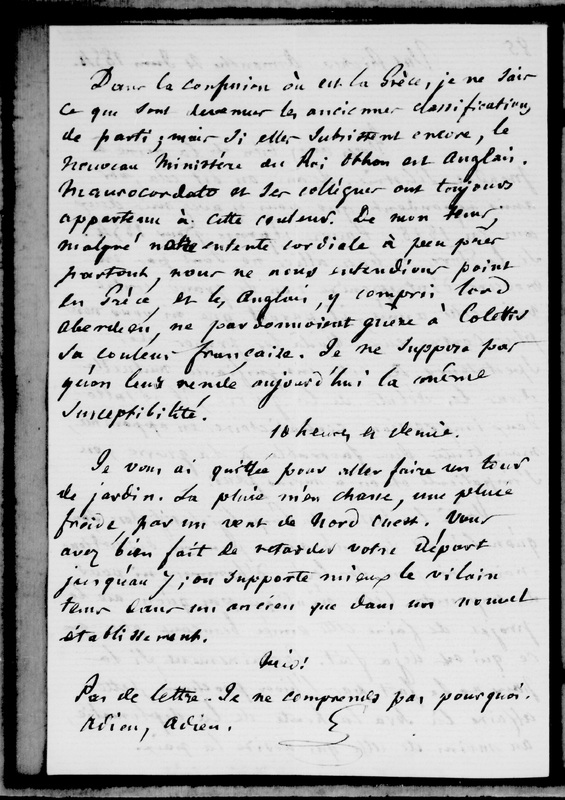 Dans la confusion où est la Grèce, je ne sais
ce que sont devenues les anciennes classifications
de parti ; mais si elles subsistent encore, le
nouveau Ministère du Roi Othon est Anglais.
Maurocordato et ses collègues ont toujours
appartenu à cette couleur. De mon tems,
malgré notre entente cordiale à peu près
partout, nous ne nous entendions point
en Grèce, et les Anglais, y compris lord
Aberdeen, ne pardonnoient guère à Colettis
sa couleur française. Je ne suppose pas
qu'on leur rende aujourd'hui la même
susceptibilité.
10 heures et demie.
Je vous ai quittée pour aller faire un tour
de jardin. La pluie m'en chasse, une pluie
froide, par un vent de Nord Ouest. Vous
avez bien fait de retarder votre départ
jusqu'au 7 ; on supporte mieux le vilain
tems dans un ancien que dans un nouvel
établissement.
Midi.
Pas de lettre. Je ne comprends pas pourquoi.
Adieu, Adieu. G